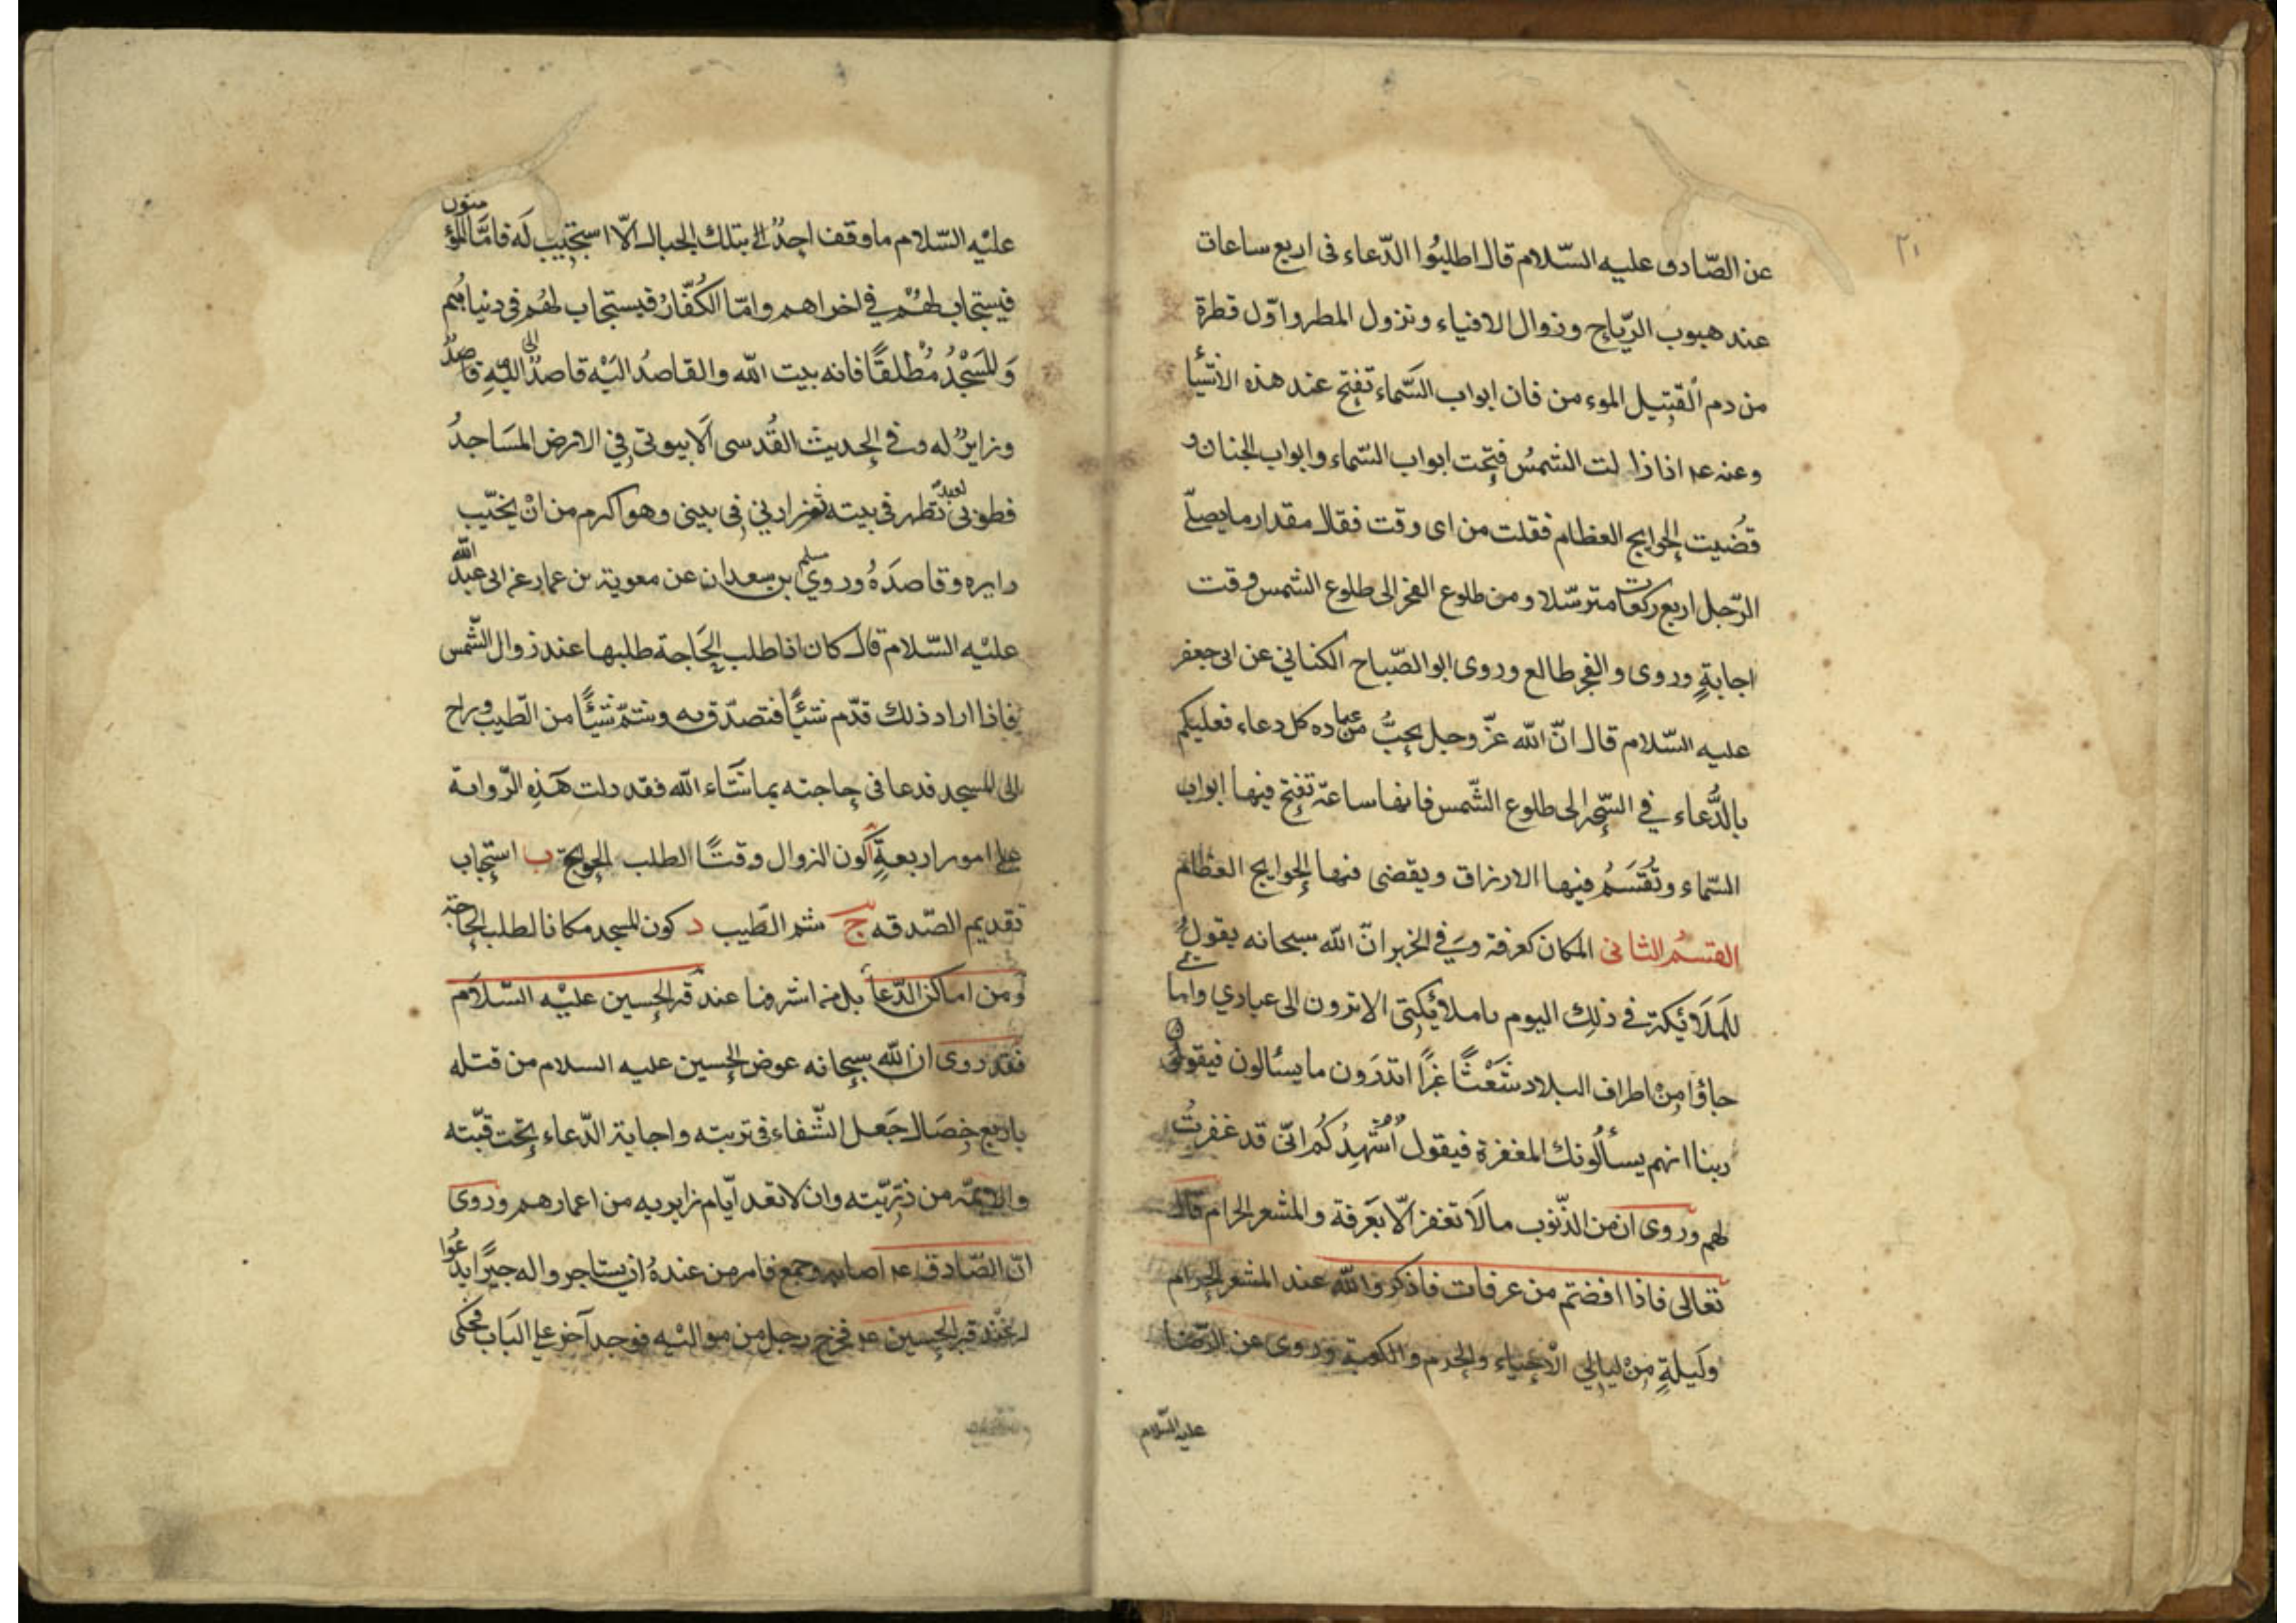 ٢١
عن الصّادق عليه السّلام قال اطلبُوا الدّعاء فى اربع ساعات
عند هبوب الرّياح وزوال الافياء ونزول المطر واوّل قطرة
من دم القتيل الموءمن فان ابواب السّماء تفتح عند هذه الأشيا
وعنه عم اذا زالت الشمسُ فتحت ابواب السّماء وابواب الجنان و
قُضيت الحوايج العظام فقلت من اى وقت فقال مقدار ما يصلّى
الرّجل اربع ركعات مترسّلا ومن طلوع الفجر الى طلوع الشمس وقت
اجابةٍ وروى والفجر طالع وروى ابو الصّباح الكناني عن ابى جعفر
عليه السّلام قال انّ الله عزّ وجل يحبُّ من عباده كل دعاء فعليكم
بالدُّعاء في السّحر الى طلوع الشّمس فانها ساعة تفتح فيها ابواب
السّماء وتُقسَمُ فيها الارزاق ويقضى فيها الحوايج العظام
القسمُ الثانى المكان كعرفة وفي الخبر انّ الله سبحانه يقولُ
للمَلَائكة في ذلِك اليوم ياملائكتى الا ترون الى عبادي وامائي
جاؤا مِنْ اطراف البلاد شَعْثًا غبرًا اتدرَون ما يسئالون فيقولون
ربنا انهم يسألُونك المغفرة فيقول اُشهِدُكُم انّى قد غفرتُ
لهم وروى ان من الذّنوب ما لَا تغفر الّا بعَرفة والمشعر الحرام قال
تعالى فاذا افضتم من عرفات فاذكروا الله عند المشعر الحرام
وَليلةٍ مِنْ ليالي الْاحياء والحرم والكعبة وروى عن الرّضا
عليه السّلام
عليْه السّلام ما وقف احدٌ بتلك الجبال الّا استجيب لَه فامّا المؤمنون
فيستجاب لهُمْ في اخراهم وامّا الكُفّارُ فيستجاب لهُم في دنياهُم
وَالمسْجدُ مُطْلقًا فانه بيت الله والقاصدُ اليْه قاصدٌ الى اللّهِ قاصدٌ
وزايرٌ له وفى الحديث القُدسى اَلا بيوتى في الارض المسَاجدُ
فطوبى لعبد تطهر فى بيته ثم زارني فى بيتى وهو اكرم من انْ يخيّب
زايره وقاصدَهُ وروي مسلم بن سعدان عن معوية بن عمار عن ابى عبد الله
عليْه السّلام قال كان اذا طلب الحَاجة طلبها عند زوال الشّمس
فاذا اراد ذلك قدّم شيًا فتصدّق به وشمّ شيًا من الطّيب وراح
الى المسجد فدعا فى حاجته بما شَاء الله فقد دلت هَذِه الرّواية
على امور اربعةٍ أ كون الزوال وقتًا لطلب الحوايج ب استجاب
تقديم الصّدقه ج شم الطّيب د كون المسجد مكانا لطلب الحاجة
ومن اماكن الدّعا بل من اشرفها عند قبر الحسين عليْه السّلَام
فقد روى ان الله سبحانه عوض الحسين عليه السلام من قتله
باربع خِصَال جَعل الشّفاء فى تربته واجابة الدّعاء تحت قبّته
والائمّة من ذرّيّته وان لا تعد ايّام زايريه من اعمارهم وروى
انّ الصّادق عم اصابه وجع فامر من عندهُ ان يستاجروا له اجيرًا يدعُوا
له عند قبر الحسين عم فخرج رجل من مواليه فوجد آخر على البَاب فحكى